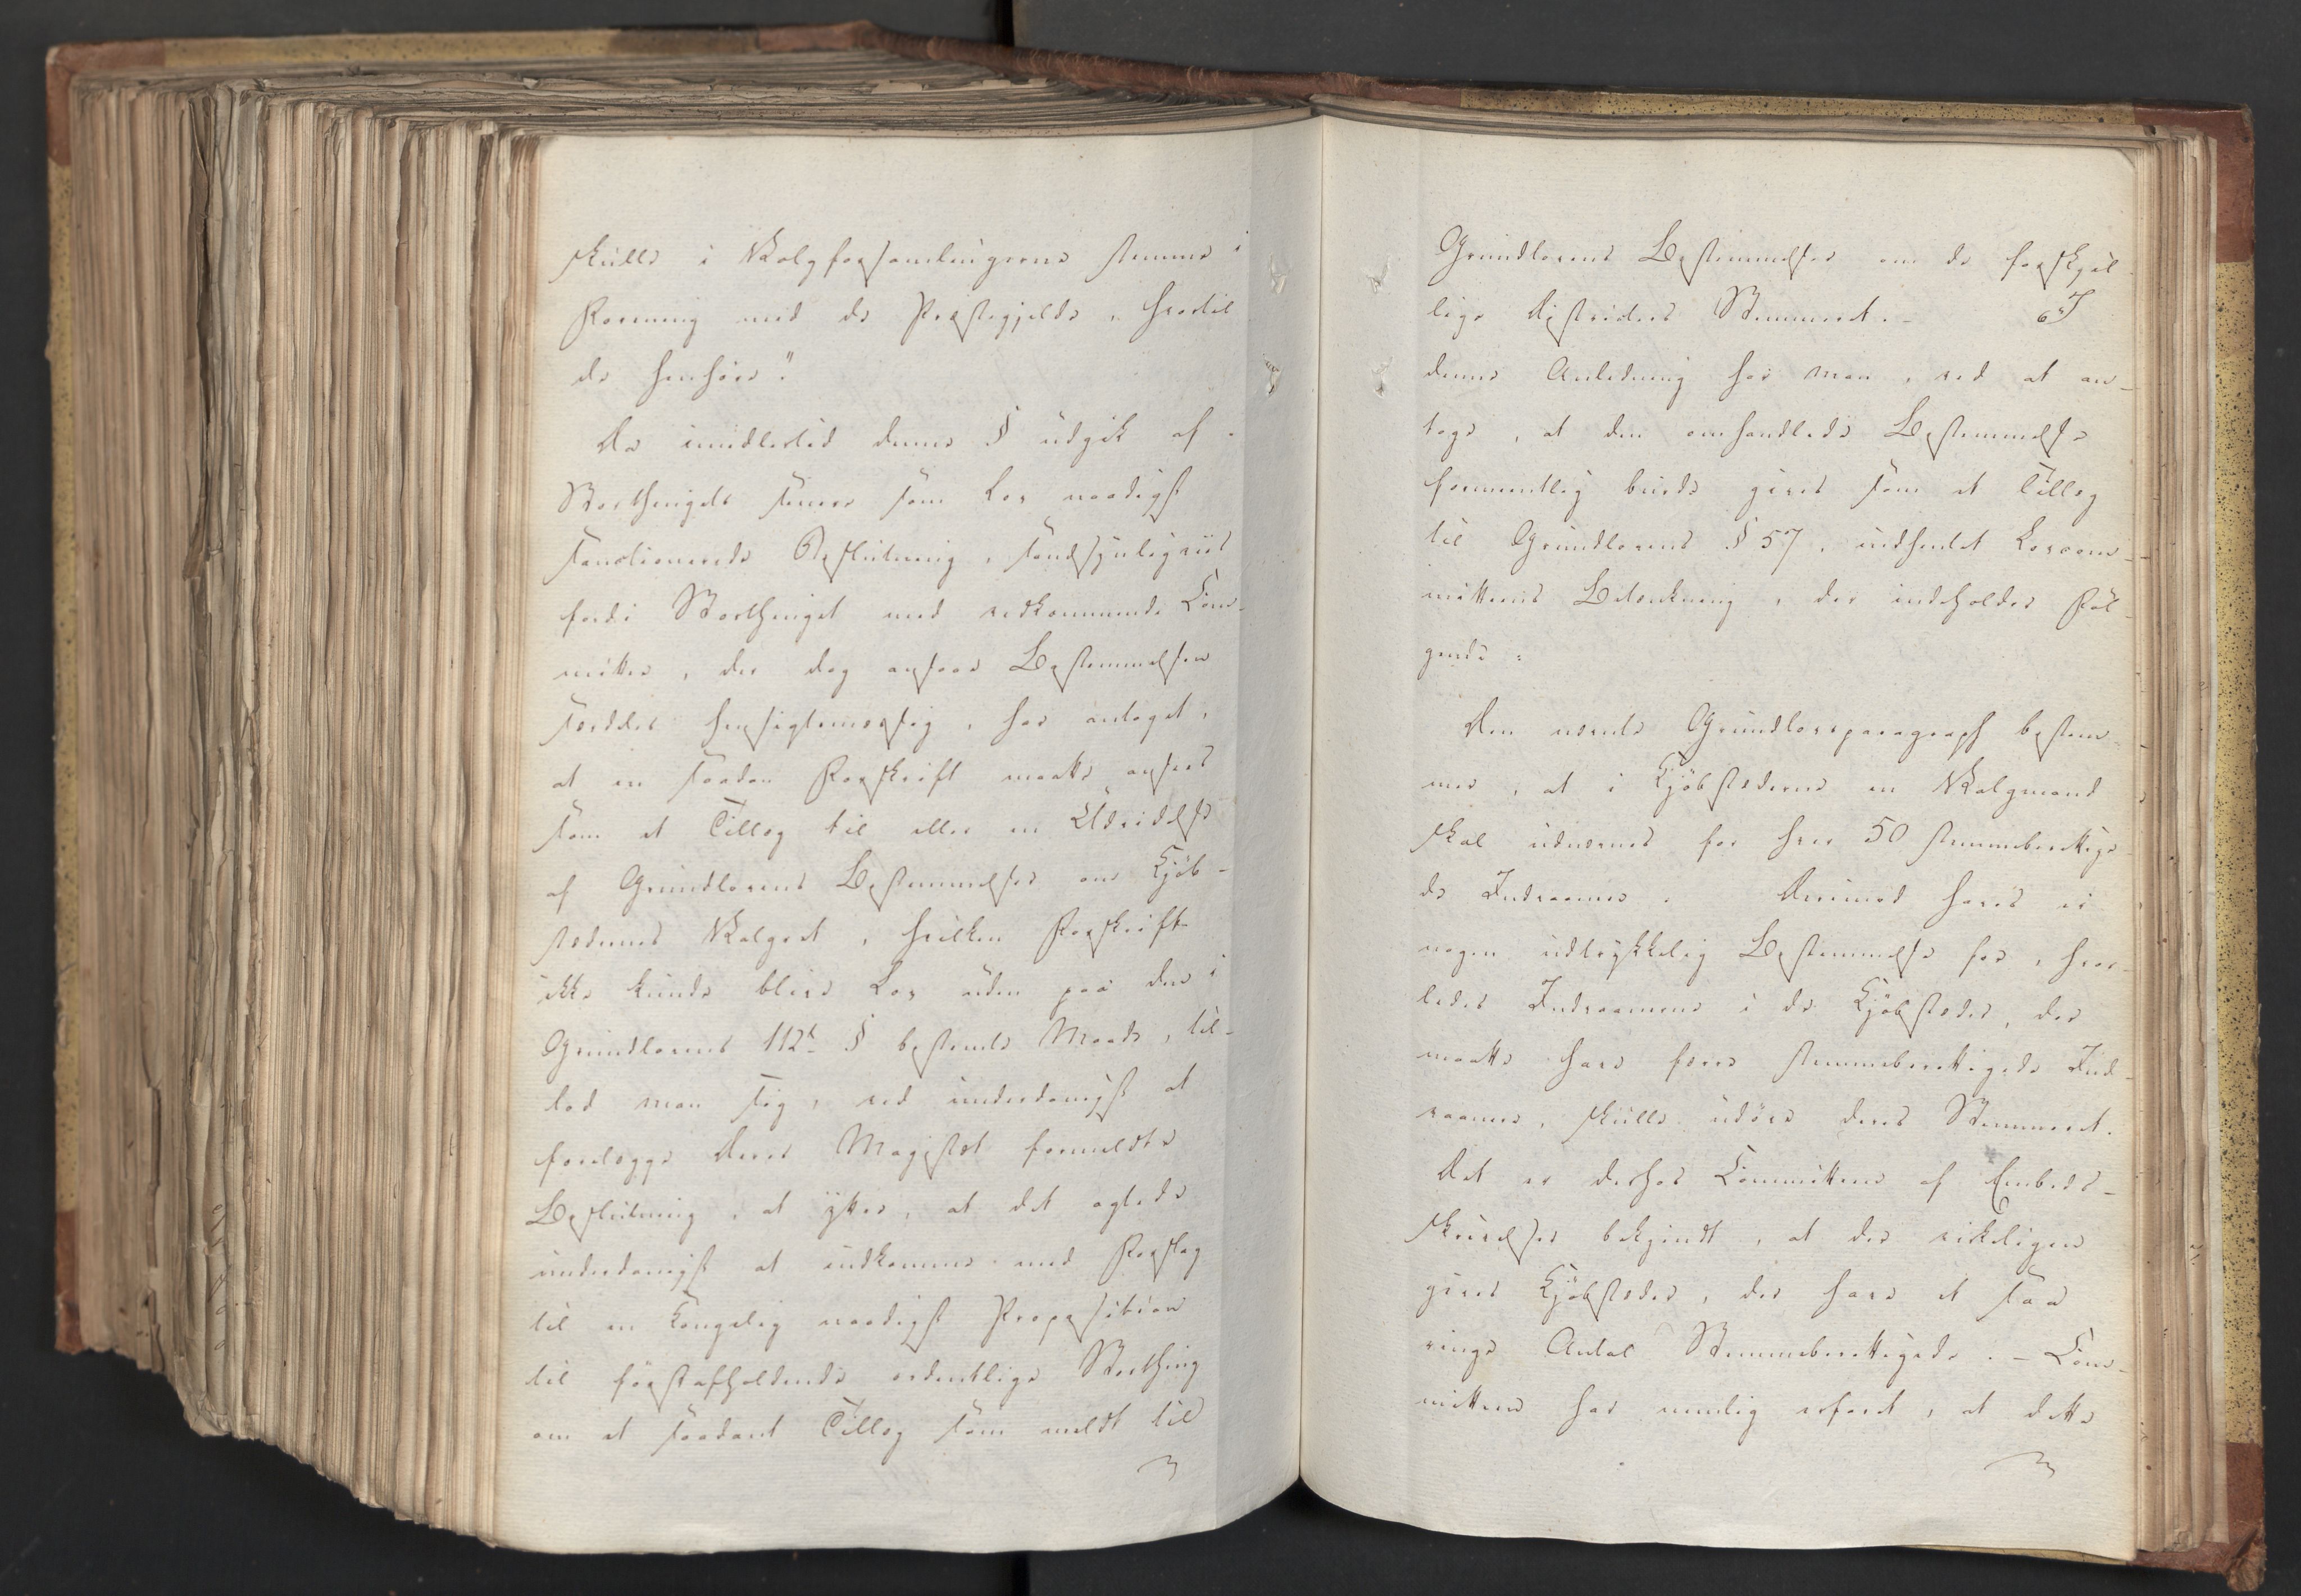 skulle i Valgforsamlingerne stemme i
Forening med de Præstegjelde, hvortil
de henhøre."
Da imidlertid denne § udgik af
Storthingets senere som Lov naadigst
sanctionerede Beslutning, sandsynligviis
fordi Storthinget med vedkommende Com-
mittee, der dog ansaae Bestemmelsen
særdeles hensigtsmæssig, har antaget,
at en saadan Forskrift maatte ansees
som et Tillæg til eller en Udvidelse
af Grundlovens Bestemmelser om Kjøb-
stædernes Valgret, hvilken Forskrift
ikke kunde blive Lov uden paa den i
Grundlovens 112te § bestemte Maade, til-
lod man sig, ved underdanigst at
forelægge Deres Majestæt formeldte
Beslutning, at yttre, at det agtedes
underdanigst at indkomme med Forslag
til en Kongelig naadigst Proposition
til førstafholdende ordentlige Storthing
om et saadant Tillæg som meldt til
Grundlovens Bestemmelser om de forskjel-
lige Districters Stemmeret. - I
denne Anledning har man, ved at an-
tage, at den omhandlede Bestemmelse
formeentlig burde gives som et Tillæg
til Grundlovens § 57, indhentet Lovcom-
mitteens Betænkning, der indeholder Føl-
gende:
Den nævnte Grundlovsparagraph bestem-
mer, at i Kjøbstæderne en Valgmand
skal udnævnes for hver 50 stemmeberettige-
de Indvaanere. Derimod haves ei
nogen udtrykkelig Bestemmelse for, hvor-
ledes Indvaanerne i de Kjøbstæder, der
maatte have færre stemmeberettigede Ind-
vaanere, skulle udøve deres Stemmeret.
Det er derhos Committeen af Embeds-
skrivelser bekjendt, at der virkeligen
gives Kjøbstæder, der have et saa
ringe Antal Stemmeberettigede. - Com-
mitteen har nemlig erfaret, at dette